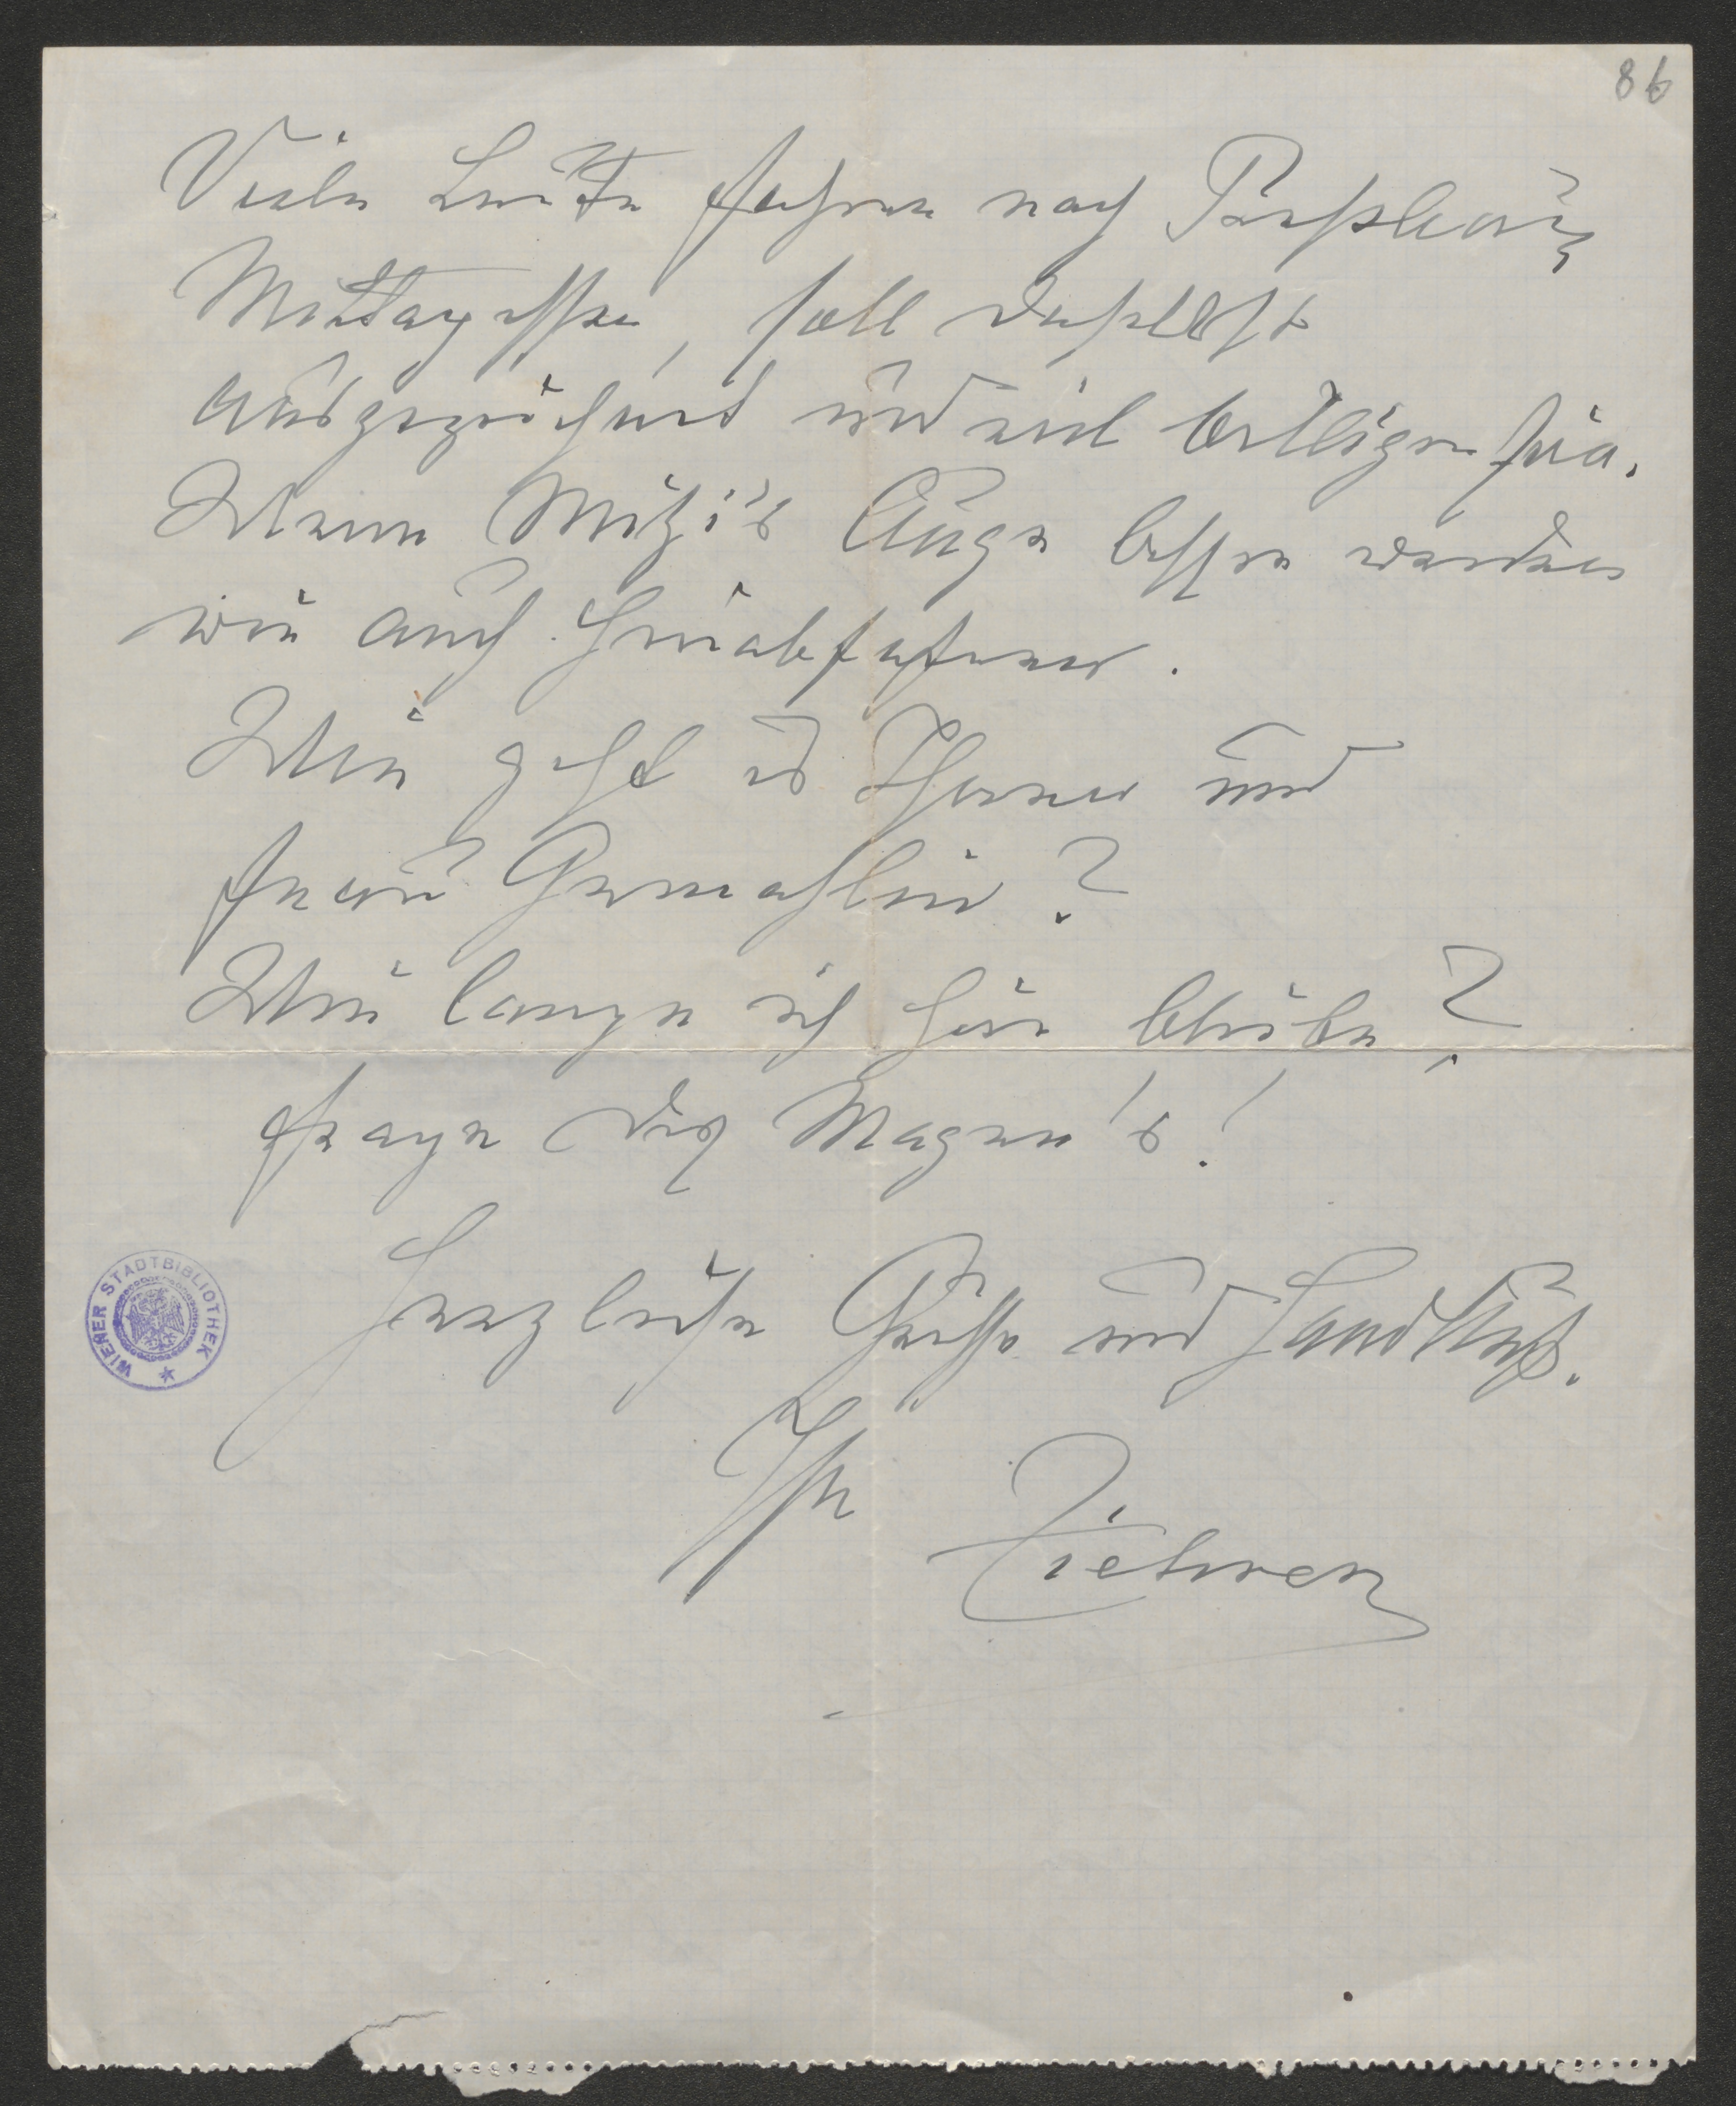 86
Viele Leute fahren nach
Mittagessen, soll daselbst
ausgezeichnet und viel billiger sein.
Wenn Mitzi's Auge besser werden
wir auch hinabfahren.
Wie geht es Ihnen und
Frau Gemahlin?
Wie lange ich hier bleibe?
Frage des Magen's!
Herzliche Grüsse und Handkuß.
Ihr Ziehrer
WIENER STADTBIBLIOTHEK